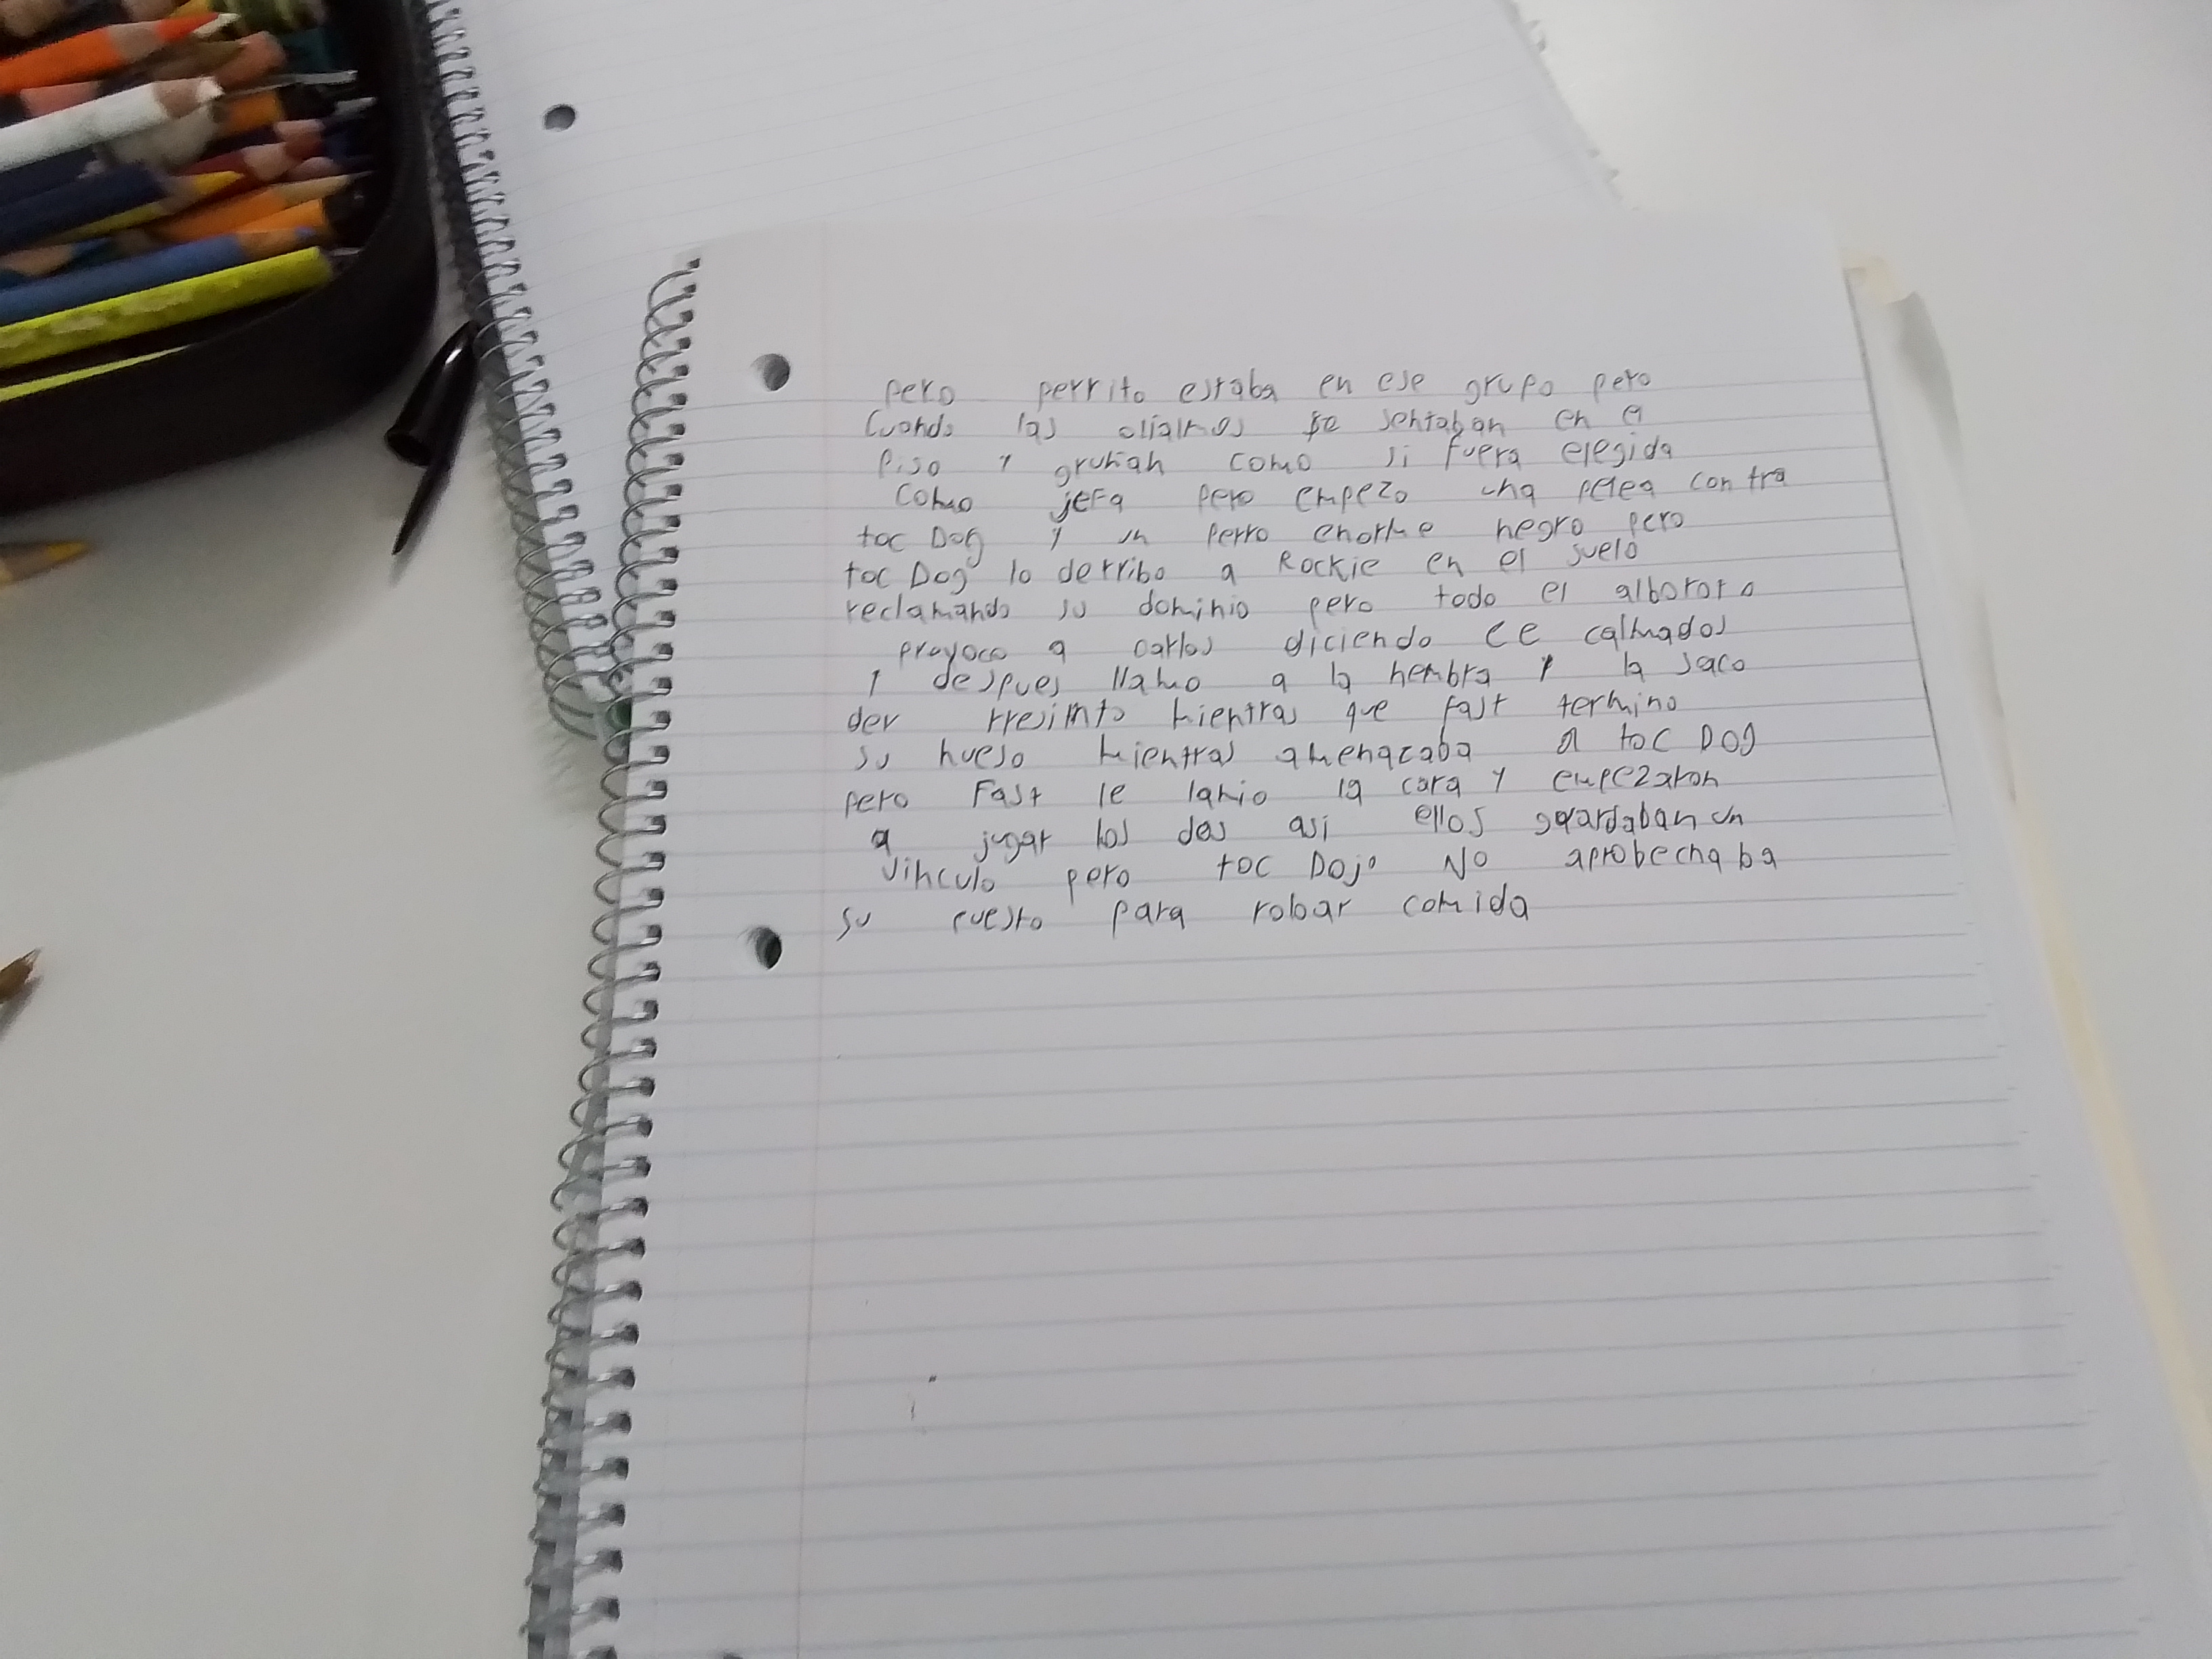 pero perrito estaba en ese grupo pero
Cuando las se sentaban en e
Piso y gruñian como si fuera elegida
como jefa pero empezo una pelea contra
toc Dog y un perro enorme negro pero
toc Dog lo derribo a Rockie en el suelo
reclamando su dominio pero todo el alboroto
proyoco a carlos diciendo ce calmados
y despues llamo a la hembra y la saco
der mientras que fast termino
su hueso mientras amenazaba a toc DOG
pero Fast le lamio la cara y empezaron
a jugar los dos asi ellos guardaban un
vinculo pero toc Dojo No aprobechaba
su puesto para robar comida